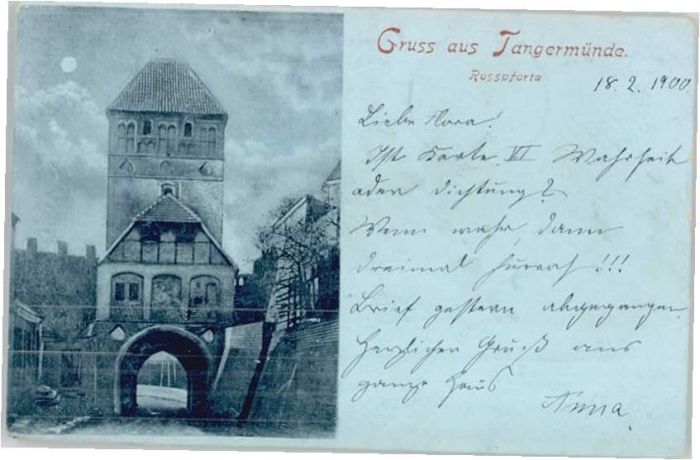 Gruss aus Tangermünde.
Rosspforte
18.2.1900
Liebe Flora!
Ist Karte VI Wahrheit
oder Dichtung?
Wenn wahr, dann
dreimal hurrah!!!
Brief gestern abgegangen.
Herzlichen Gruß ans
ganze Haus
Anna.